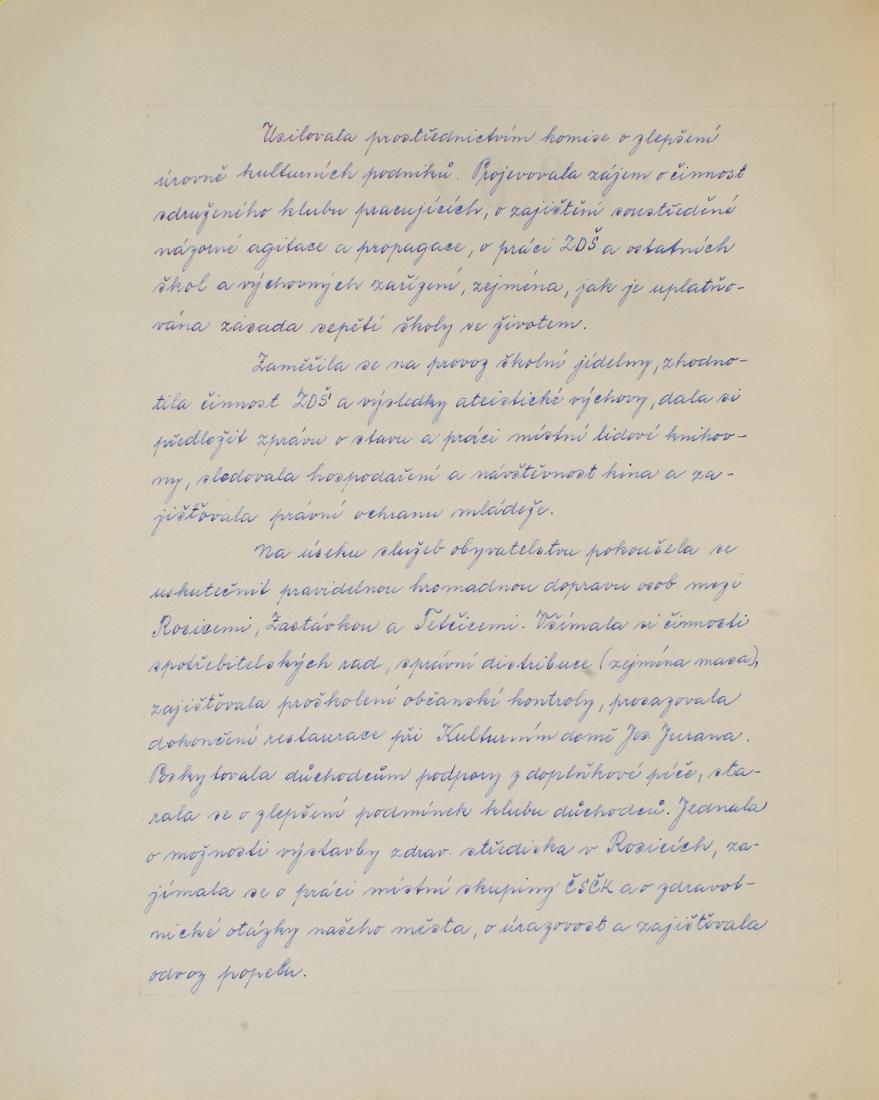 Usilovala prostřednictvím komise o zlepšení
úrovně kulturních podniků. Projevovala zájem o činnost
sdruženého klubu pracujících, o zajištění soustředěné
názorné agitace a propagace, o práci ZDŠ a ostatních
škol a výchovných zařízení, zejména, jak je uplatňo-
vána zásada sepětí školy se životem.
Zaměřila se na provoz školní jídelny, zhodno-
tila činnost ZDŠ a výsledky ateistické výchovy, dala si
předložit zprávu o stavu a práci místní lidové knihov-
ny, sledovala hospodaření a návštěvnost kina a za-
jišťovala právní ochranu mládeže.
Na úseku služeb obyvatelstvu pokoušela se
uskutečnit pravidelnou hromadnou dopravu osob mezi
Rosicemi, Zastávkou a Tetčicemi. Všímala si činnosti
spotřebitelských rad, správní distribuce (zejména masa),
zajišťovala proškolení občanské kontroly, prosazovala
dokončení restaurace při Kulturním domě Jos. Jurana.
Poskytovala důchodcům podpory z doplňkové péče, sta-
rala se o zlepšení podmínek klubu důchodců. Jednala
o možnosti výstavby zdrav. střediska v Rosicích, za-
jímala se o práci místní skupiny ČSČK a o zdravot-
nické otázky našeho města, o úrazovost a zajišťovala
odvoz popelu.